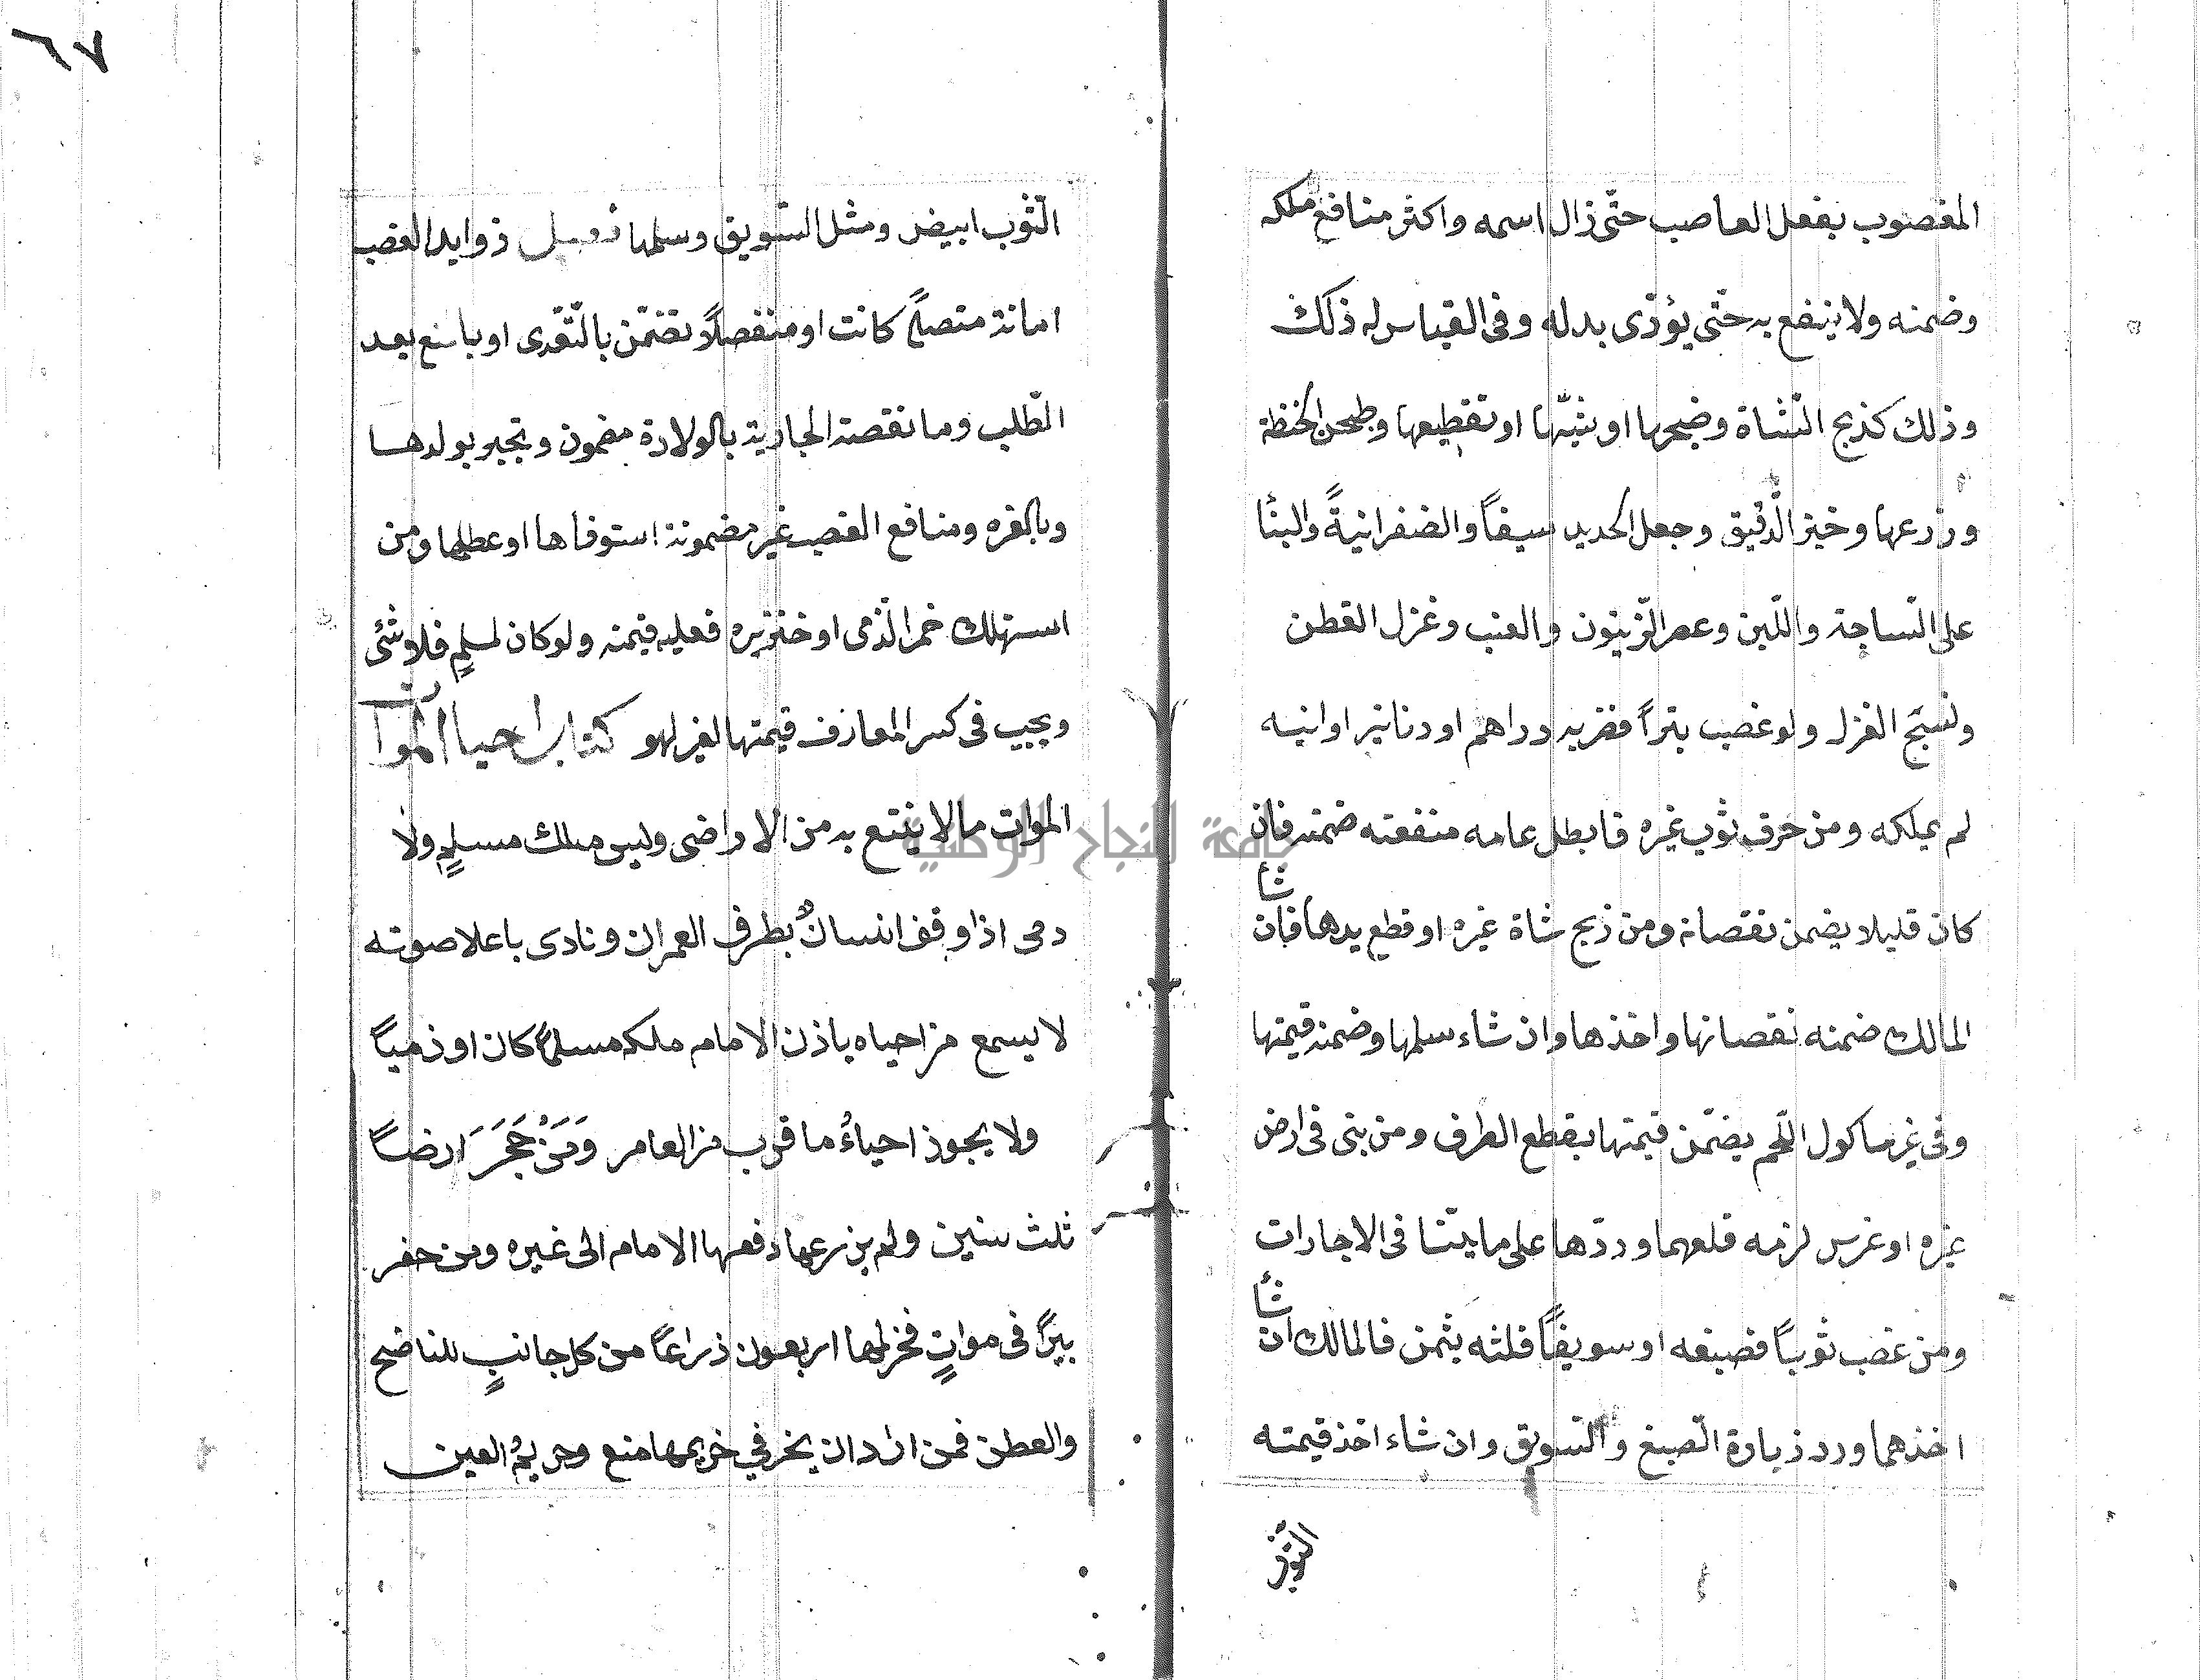 المغصوب بفعل الغاصب حتّى زال اسمه واكثر منافع ملكه
وضمنه ولا ينتفع به حتّى يؤدّى بدله وفى القياس له ذلك
وذلك كذبح الشّاة وطبخها او شيّها او تقطيعها وطحن الحنظة
وزرعها وخبز الدّقيق وجعل الحديد سيفاً والصفر انيةً والبنا
على السّاجة واللّبن وعصر الزّيتون والعنب وغزل القطن
ونسج الغزل ولو غصب تبراً فضربه دراهم او دنانير او انيه
لم يملكه ومن خرق ثوب غيره فابطل عامه منفعته ضمنه فان
كان قليلا يضمن نقصانه ومن ذبح شاة غيره او قطع يدها فان شأ
المالك ضمنه نقصانها واخذها وان شاء سلمها وضمنه قيمتها
وفى غير ماكول اللّحم يضمّن قيمتها بقطع الطرف ومن بنى فى ارض
غيره او غرس لزمه قلعهما وردّها على ما بيّنا فى الاجارات
ومن غصب ثوباً فصبغه او سويقاً فلته بثمن فالمالك ان شأ
اخذهما ورد زيادة الصّبغ والسّويق وان شاء اخذ قيمته
الثّوب
٦٧
الثّوب ابيض ومثل السّويق وسلمها فصل زوايد الغصب
امانة متصلةً كانت او منفصلاً تضمّن بالتّعّدى او بالمنع بعد
الطّلب وما نقصته الجارية بالولادة مضمون وتجبر بولدها
وبالغره ومنافع الغصب غير مضمونة استوفاها او عطلها ومن
استهلك خمر الذّمى او خنزيره فعليه قيمته ولو كان لمسلمٍ فلا شئى
ويجب فى كسر المعازف قيمتها لغير لهو كتاب احيا الموات
الموات مالا ينتفع به من الاراضى وليس ملك مسلمٍ ولا
ذمى اذا وقف انسانٌ بطرف العمران ونادى باعلا صوته
لا يسمع من احياه باذن الامام ملكه مسلماً كان او ذمياً
ولا يجوز احياءُ ما قرب من العامر وَمَنْ حَجَرَ ارضاً
ثلث سنين ولم يزرعها دفعها الامام الى غيره ومن حفر
بيراً فى مواتٍ فحريمها اربعون ذراعاً من كل جانبٍ للناضح
والعطن فمن اراد ان يحفر في حريمها منع وحريمُ العين